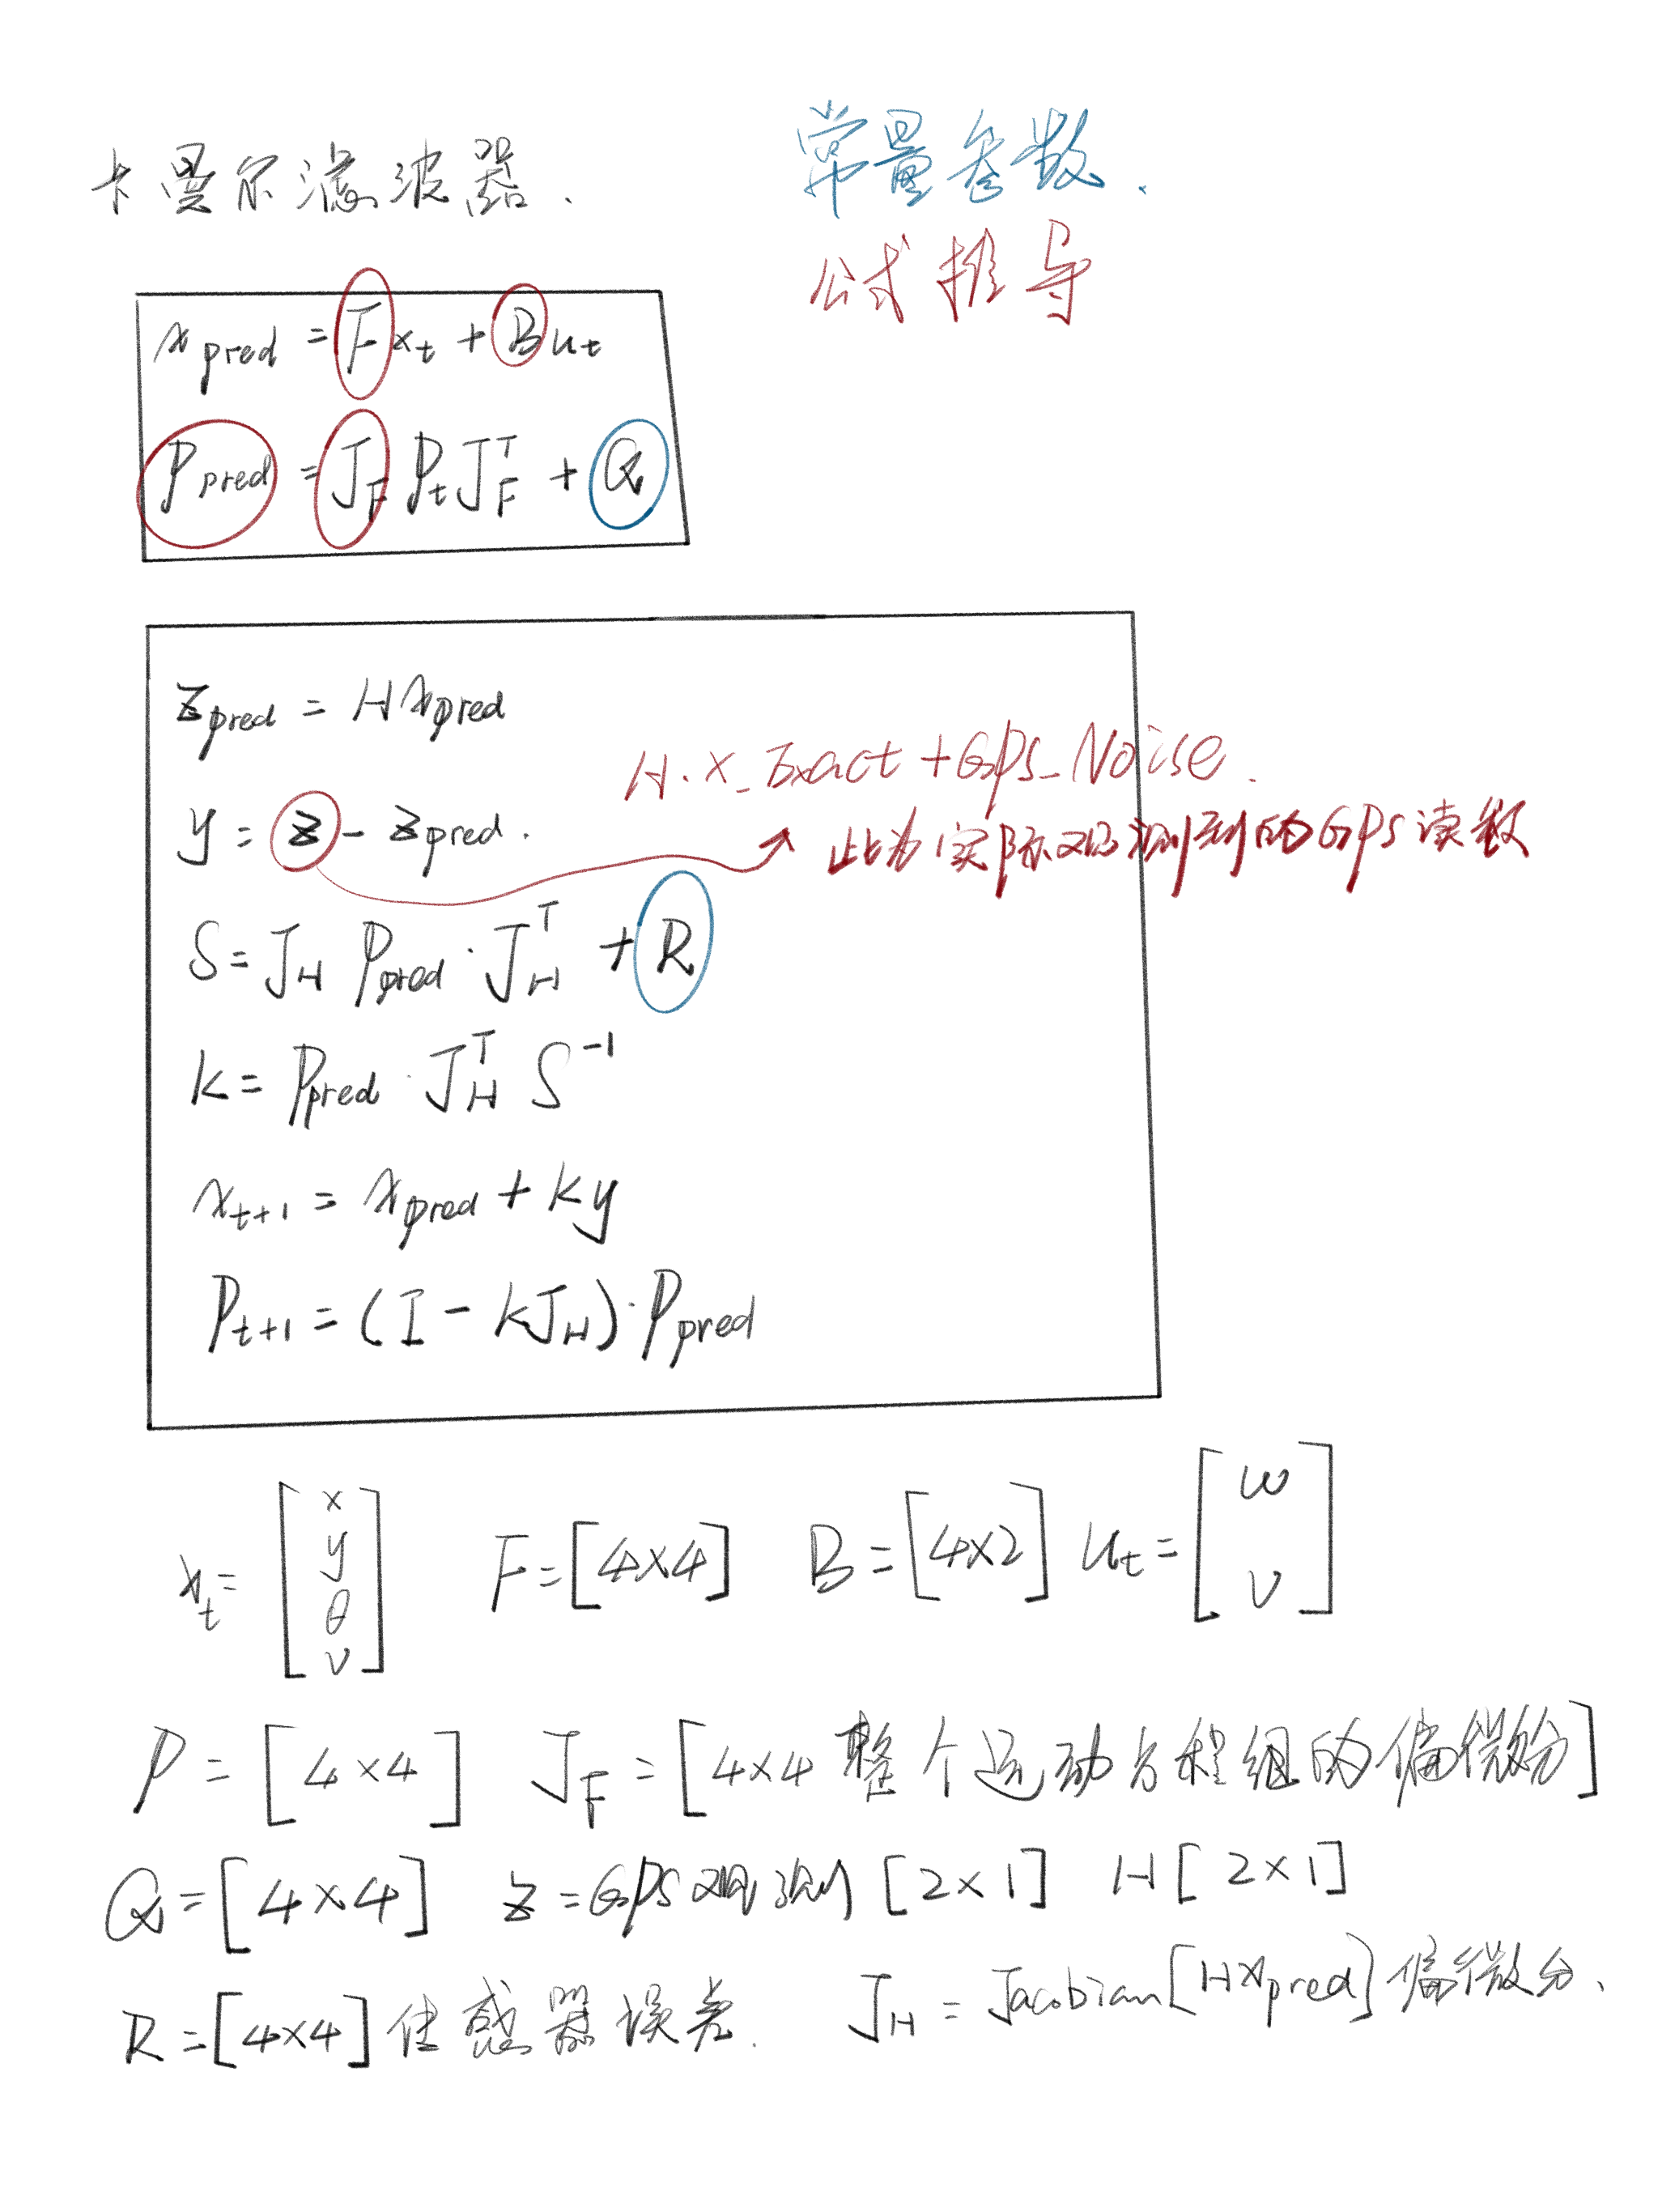 卡曼尔滤波器.
常量参数.
公式推导
x_pred = F x_t + B u_t
P_pred = J_F P_t J_F^T + Q
z_pred = H x_pred
H·x_Exact + GPS_Noise.
y = z - z_pred.
此为实际观测到的GPS读数
S = J_H P_pred · J_H^T + R
K = P_pred · J_H^T S^-1
x_t+1 = x_pred + K y
P_t+1 = (I - K J_H) · P_pred
x_t = [x y θ v] F = [4×4] B = [4×2] u_t = [w v]
P = [4×4] J_F = [4×4 整个运动方程组的偏微分]
Q = [4×4] z = GPS观测 [2×1] H [2×1]
R = [4×4] 传感器误差. J_H = Jacobian[H x_pred] 偏微分.